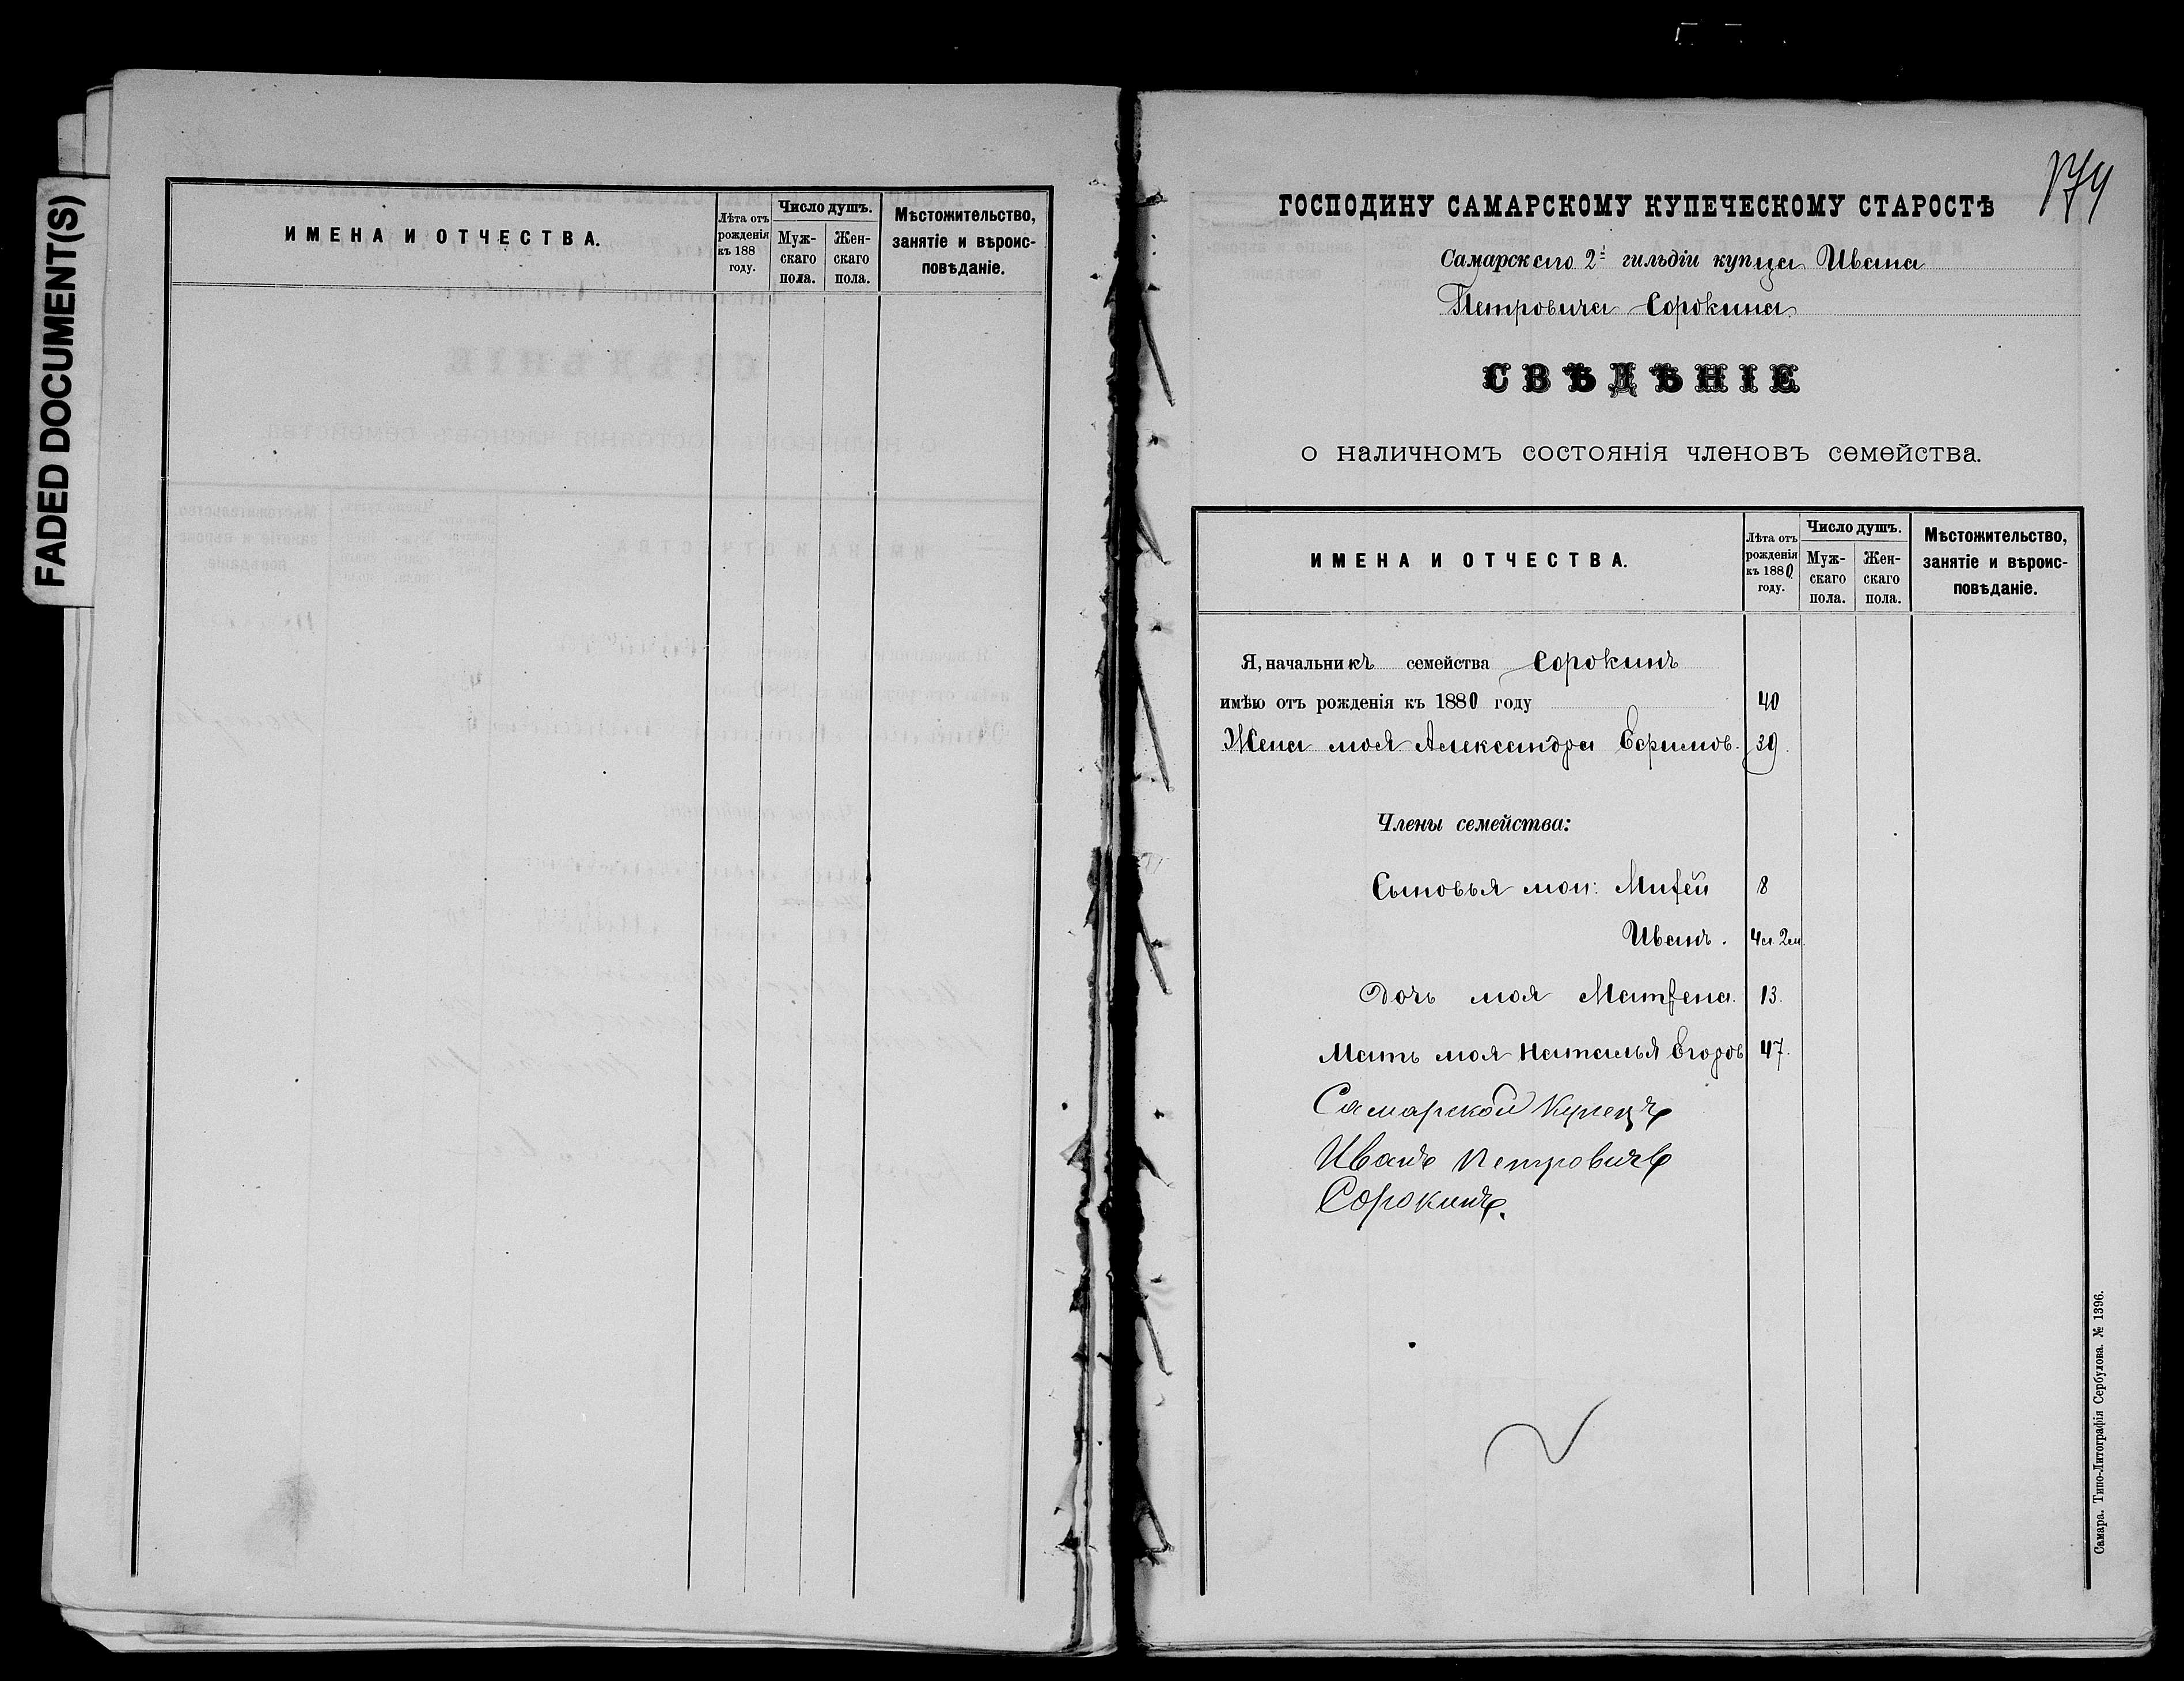 FADED DOCUMENT(S)
ИМЕНА И ОТЧЕСТВА.
Лѣта отъ рожденія къ 188 году.
Число душъ.
Мужскаго пола.
Женскаго пола.
Мѣстожительство, занятіе и вѣроисповѣданіе.
174
ГОСПОДИНУ САМАРСКОМУ КУПЕЧЕСКОМУ СТАРОСТѢ
Самарскаго 2й гильдіи купца Ивана
Петровича Сорокина
СВѢДѢНІЕ
о наличномъ состоянія членовъ семейства.
ИМЕНА И ОТЧЕСТВА.
Лѣта отъ рожденія къ 1880 году.
Число душъ.
Мужскаго пола.
Женскаго пола.
Мѣстожительство, занятіе и вѣроисповѣданіе.
Я, начальникъ семейства Сорокинъ
имѣю отъ рожденія къ 1880 году 40
Жена моя Александра Ефимов. 39.
Члены семейства:
Сыновья мои: Миѳей 8
Иванъ. 4л. 2м.
Дочь моя Матѳена. 13.
Мать моя Наталья Егоров 47.
Самарской Купецъ
Иванъ Петровичъ
Сорокинъ.
Самара. Типо-Литографія Сербулова. № 1396.